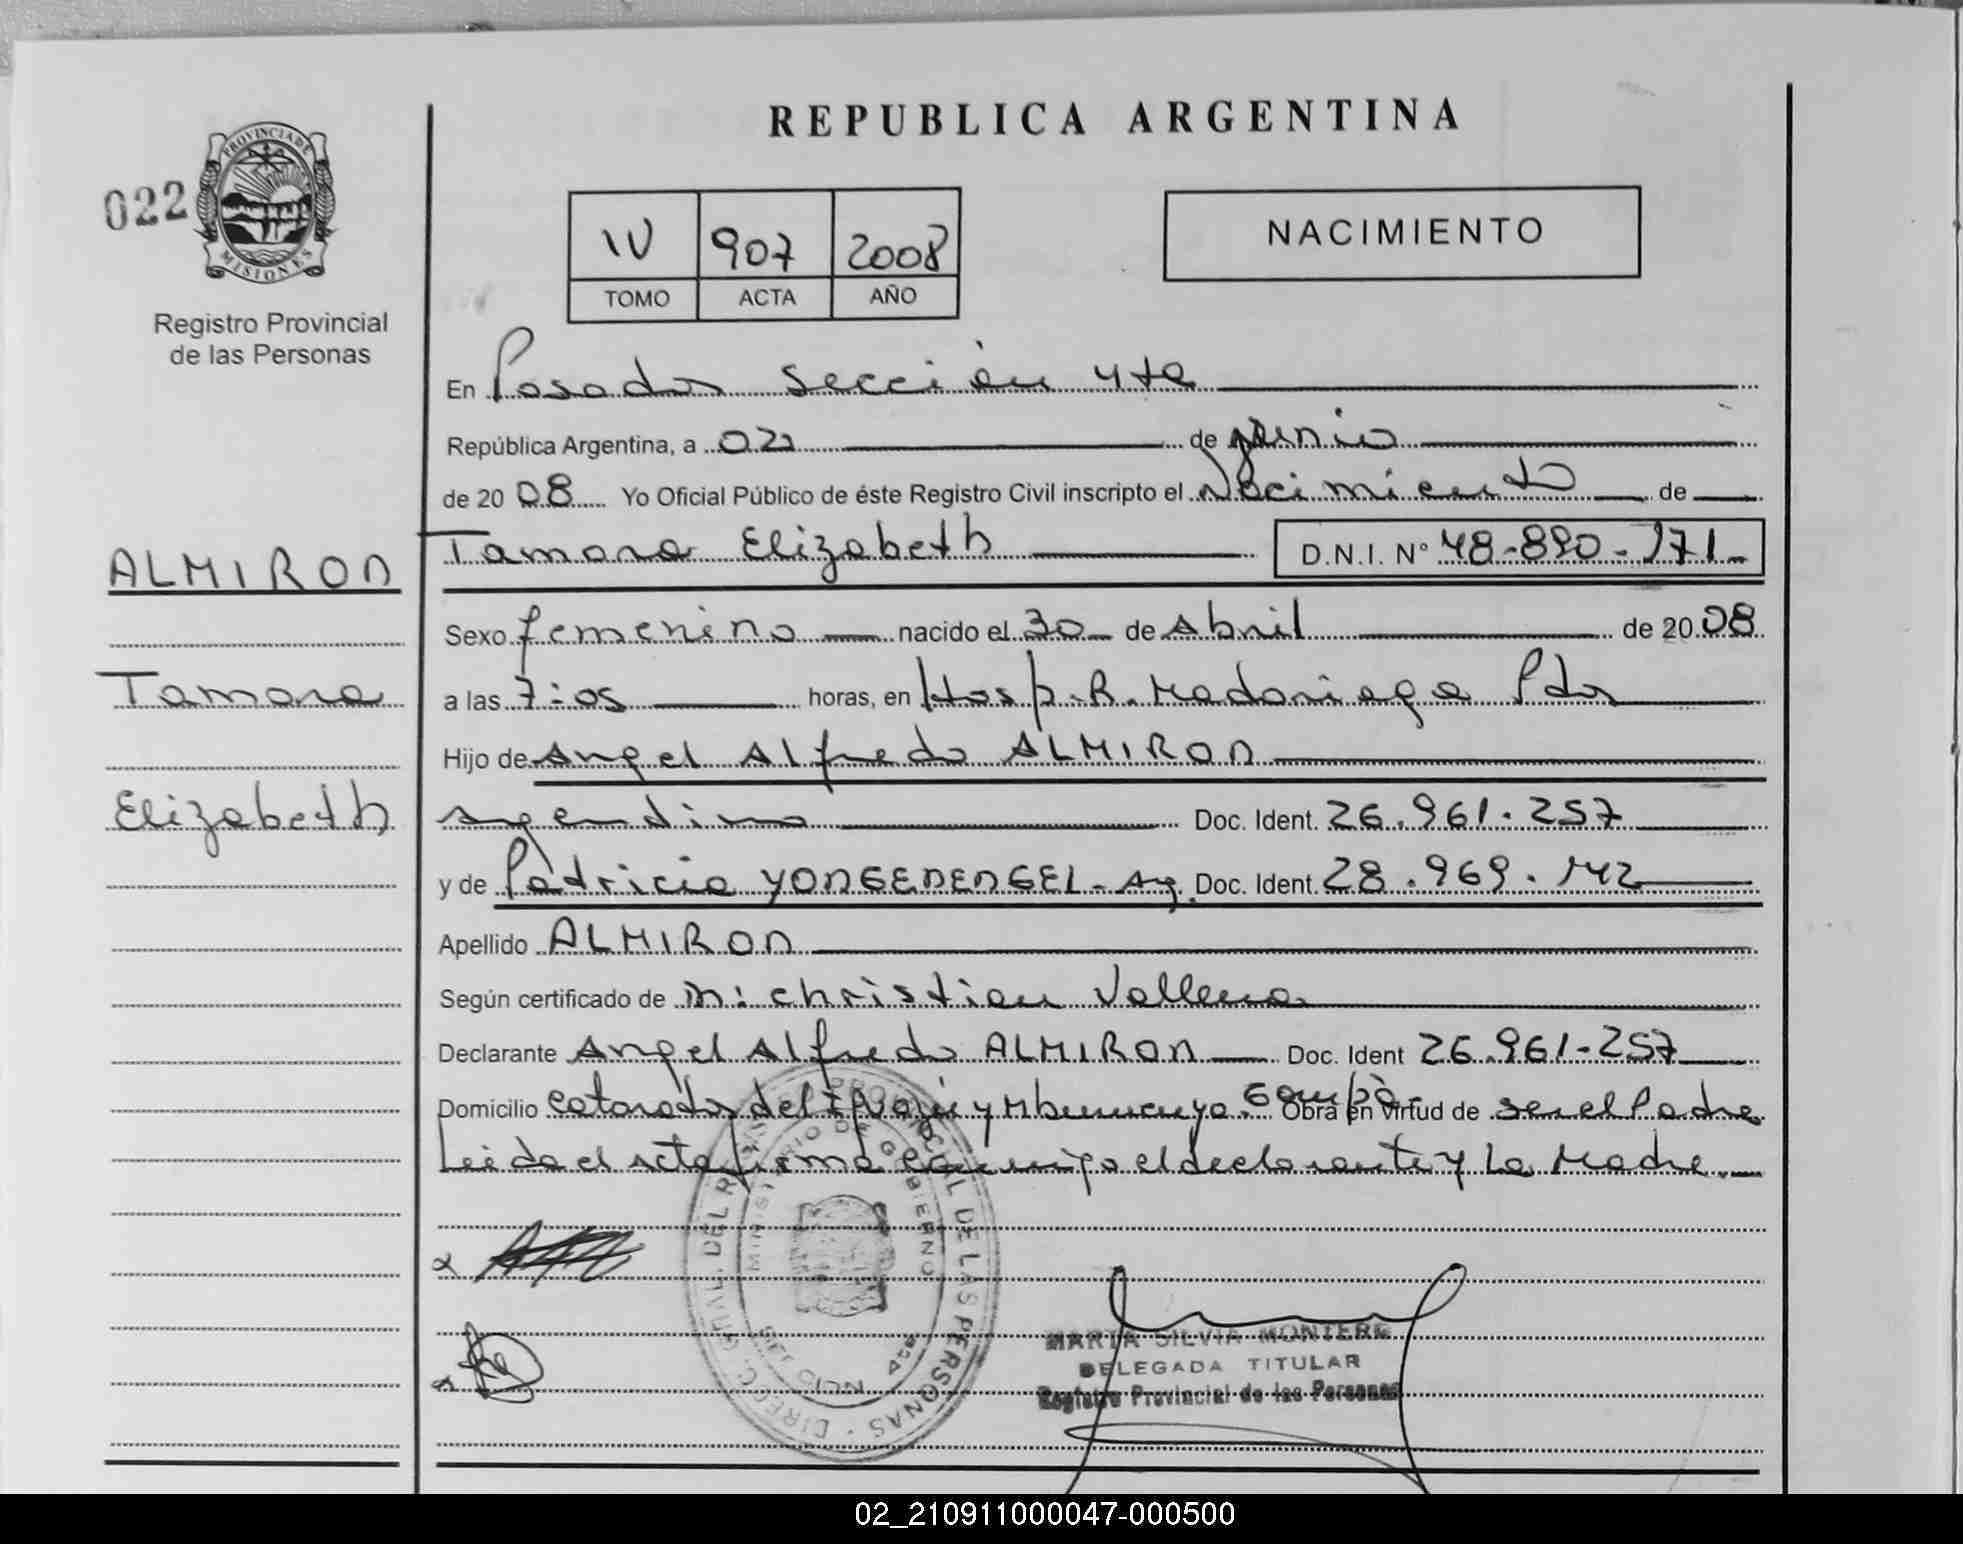 REPUBLICA ARGENTINA
022
PROVINCIA DE
MISIONES
Registro Provincial
de las Personas
IV 907 2008
TOMO ACTA AÑO
NACIMIENTO
En Posadas Sección 4ta
República Argentina, a 02 de junio
de 20 08 Yo Oficial Público de éste Registro Civil inscripto el Nacimiento de
ALMIRON
Tamara Elizabeth D.N.I. N° 48-890-171-
Sexo femenino nacido el 30 de Abril de 20 08
Tamara
a las 7:05 horas, en Hosp. R. Madariaga Pdas
Hijo de Angel Alfredo ALMIRON
Elizabeth
argentino Doc. Ident. 26.961.257
y de Patricia YONGENENGEL - Arg. Doc. Ident. 28.969.142
Apellido ALMIRON
Según certificado de M: Christian
Declarante Angel Alfredo ALMIRON Doc. Ident 26.961-257
Domicilio Cataratas del y Obra en virtud de ser el Padre
Leida el acta firma conmigo el declarante y La Madre.
MINISTERIO DE GOBIERNO
DIREC. GRAL. DEL PROVINCIAL DE LAS PERSONAS
MARTA SILVIA MONTERO
DELEGADA TITULAR
Registro Provincial de las Personas
02_210911000047-000500